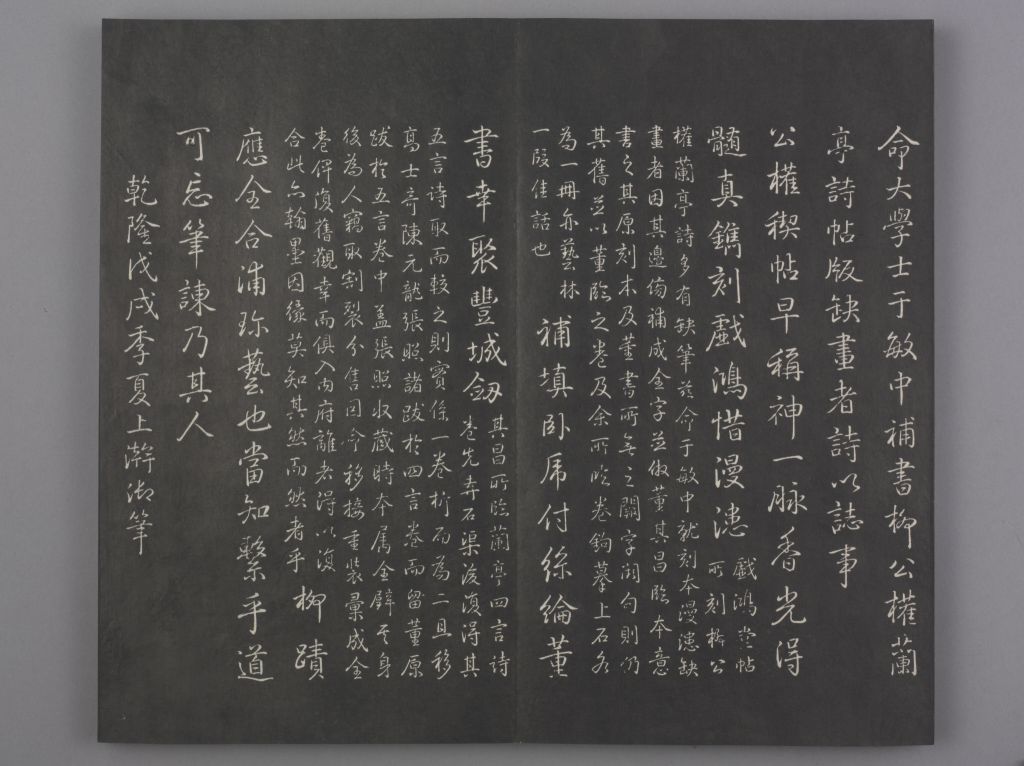 命大學士于敏中補書柳公權蘭
亭詩帖版缺畫者詩以誌事
公權稧帖早稱神一脉香光得
髓真鐫刻戲鴻惜漫漶
戲鴻堂帖
所刻柳公
權蘭亭詩多有缺筆茲令于敏中就刻本漫漶缺
畫者因其邊傍補成全字並倣董其昌臨本意
書之其原刻本及董書所無之闕字闕句則仍
其舊並以董臨之卷及余所臨卷鈎摹上石各
為一冊亦藝林
一段佳話也
補填卧虎付絲綸董
書幸聚豐城劔
其昌所臨蘭亭四言詩
卷先弆石渠後復得其
五言詩取而較之則實係一卷析而為二且移
高士奇陳元龍張照諸跋於四言卷而留董原
跋於五言卷中盖張照收藏時本属全璧其身
後為人竊取割裂分售因令移接重裝彙成全
卷俾復舊觀幸而俱入内府離者得以復
合此亦翰墨因緣莫知其然而然者乎
柳蹟
應全合浦珎藝也當知繫乎道
可忘筆諫乃其人
乾隆戊戌季夏上澣御筆